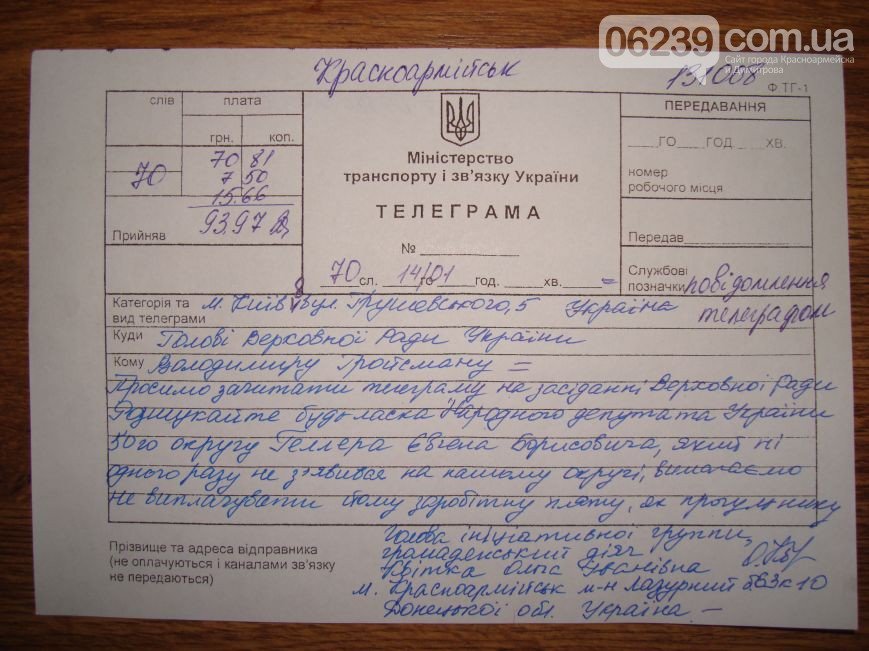 06239.com.ua
Сайт города Красноармейска
и Димитрова
Красноармійськ
Ф.ТГ-1
слів
плата
ПЕРЕДАВАННЯ
грн. коп.
70 81
70
7 50
15.66
93.97
Прийняв
Міністерство
транспорту і зв'язку України
ТЕЛЕГРАМА
№
70 сл. 14/01 го год. хв.
ГО ГОД. ХВ.
номер
робочого місця
Передав
Службові
позначки повідомлення
телеграфом
Категорія та
вид телеграми
м. Київ 8 вул. Грушевського, 5 Україна
Куди Голові Верховної Ради України
Кому Володимиру Гройсману =
Просимо зачитати телеграму на засіданні Верховної Ради
Розшукайте будь ласка Народного депутата України
50го округу Геллера Євгена Борисовича, який ні
одного разу не з'явився на нашому округі, вимагаємо
не виплачувати йому заробітну плату, як прогульнику
Голова ініціативної группи,
громаденський діяч
Квітка Ольга Іванівна
м. Красноармійськ м-н Лазурний б63к10
Донецької обл. Україна –
Прізвище та адреса відправника
(не оплачуються і каналами зв'язку
не передаються)